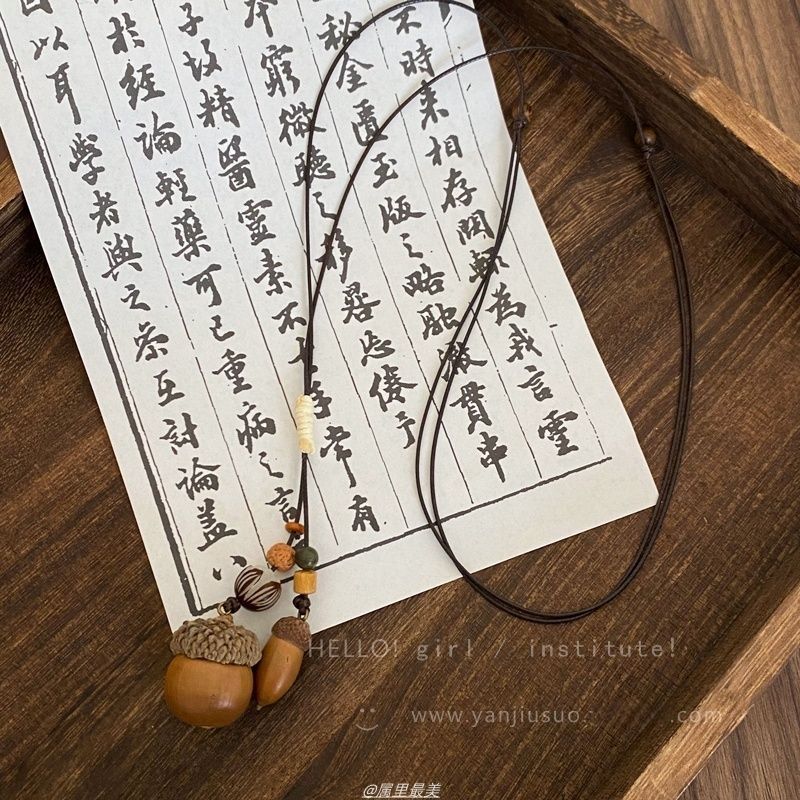 不時來相存問輒為我言靈
秘金匱玉版之略融澈貫串
本窮微聽之移晷忘倦予
子故精醫靈素不手常有
於經論輕藥可已重病之言
以耳學者與之叅互討論蓋八
HELLO! girl / institute!
www.yanjiusuo. .com
@属里最美